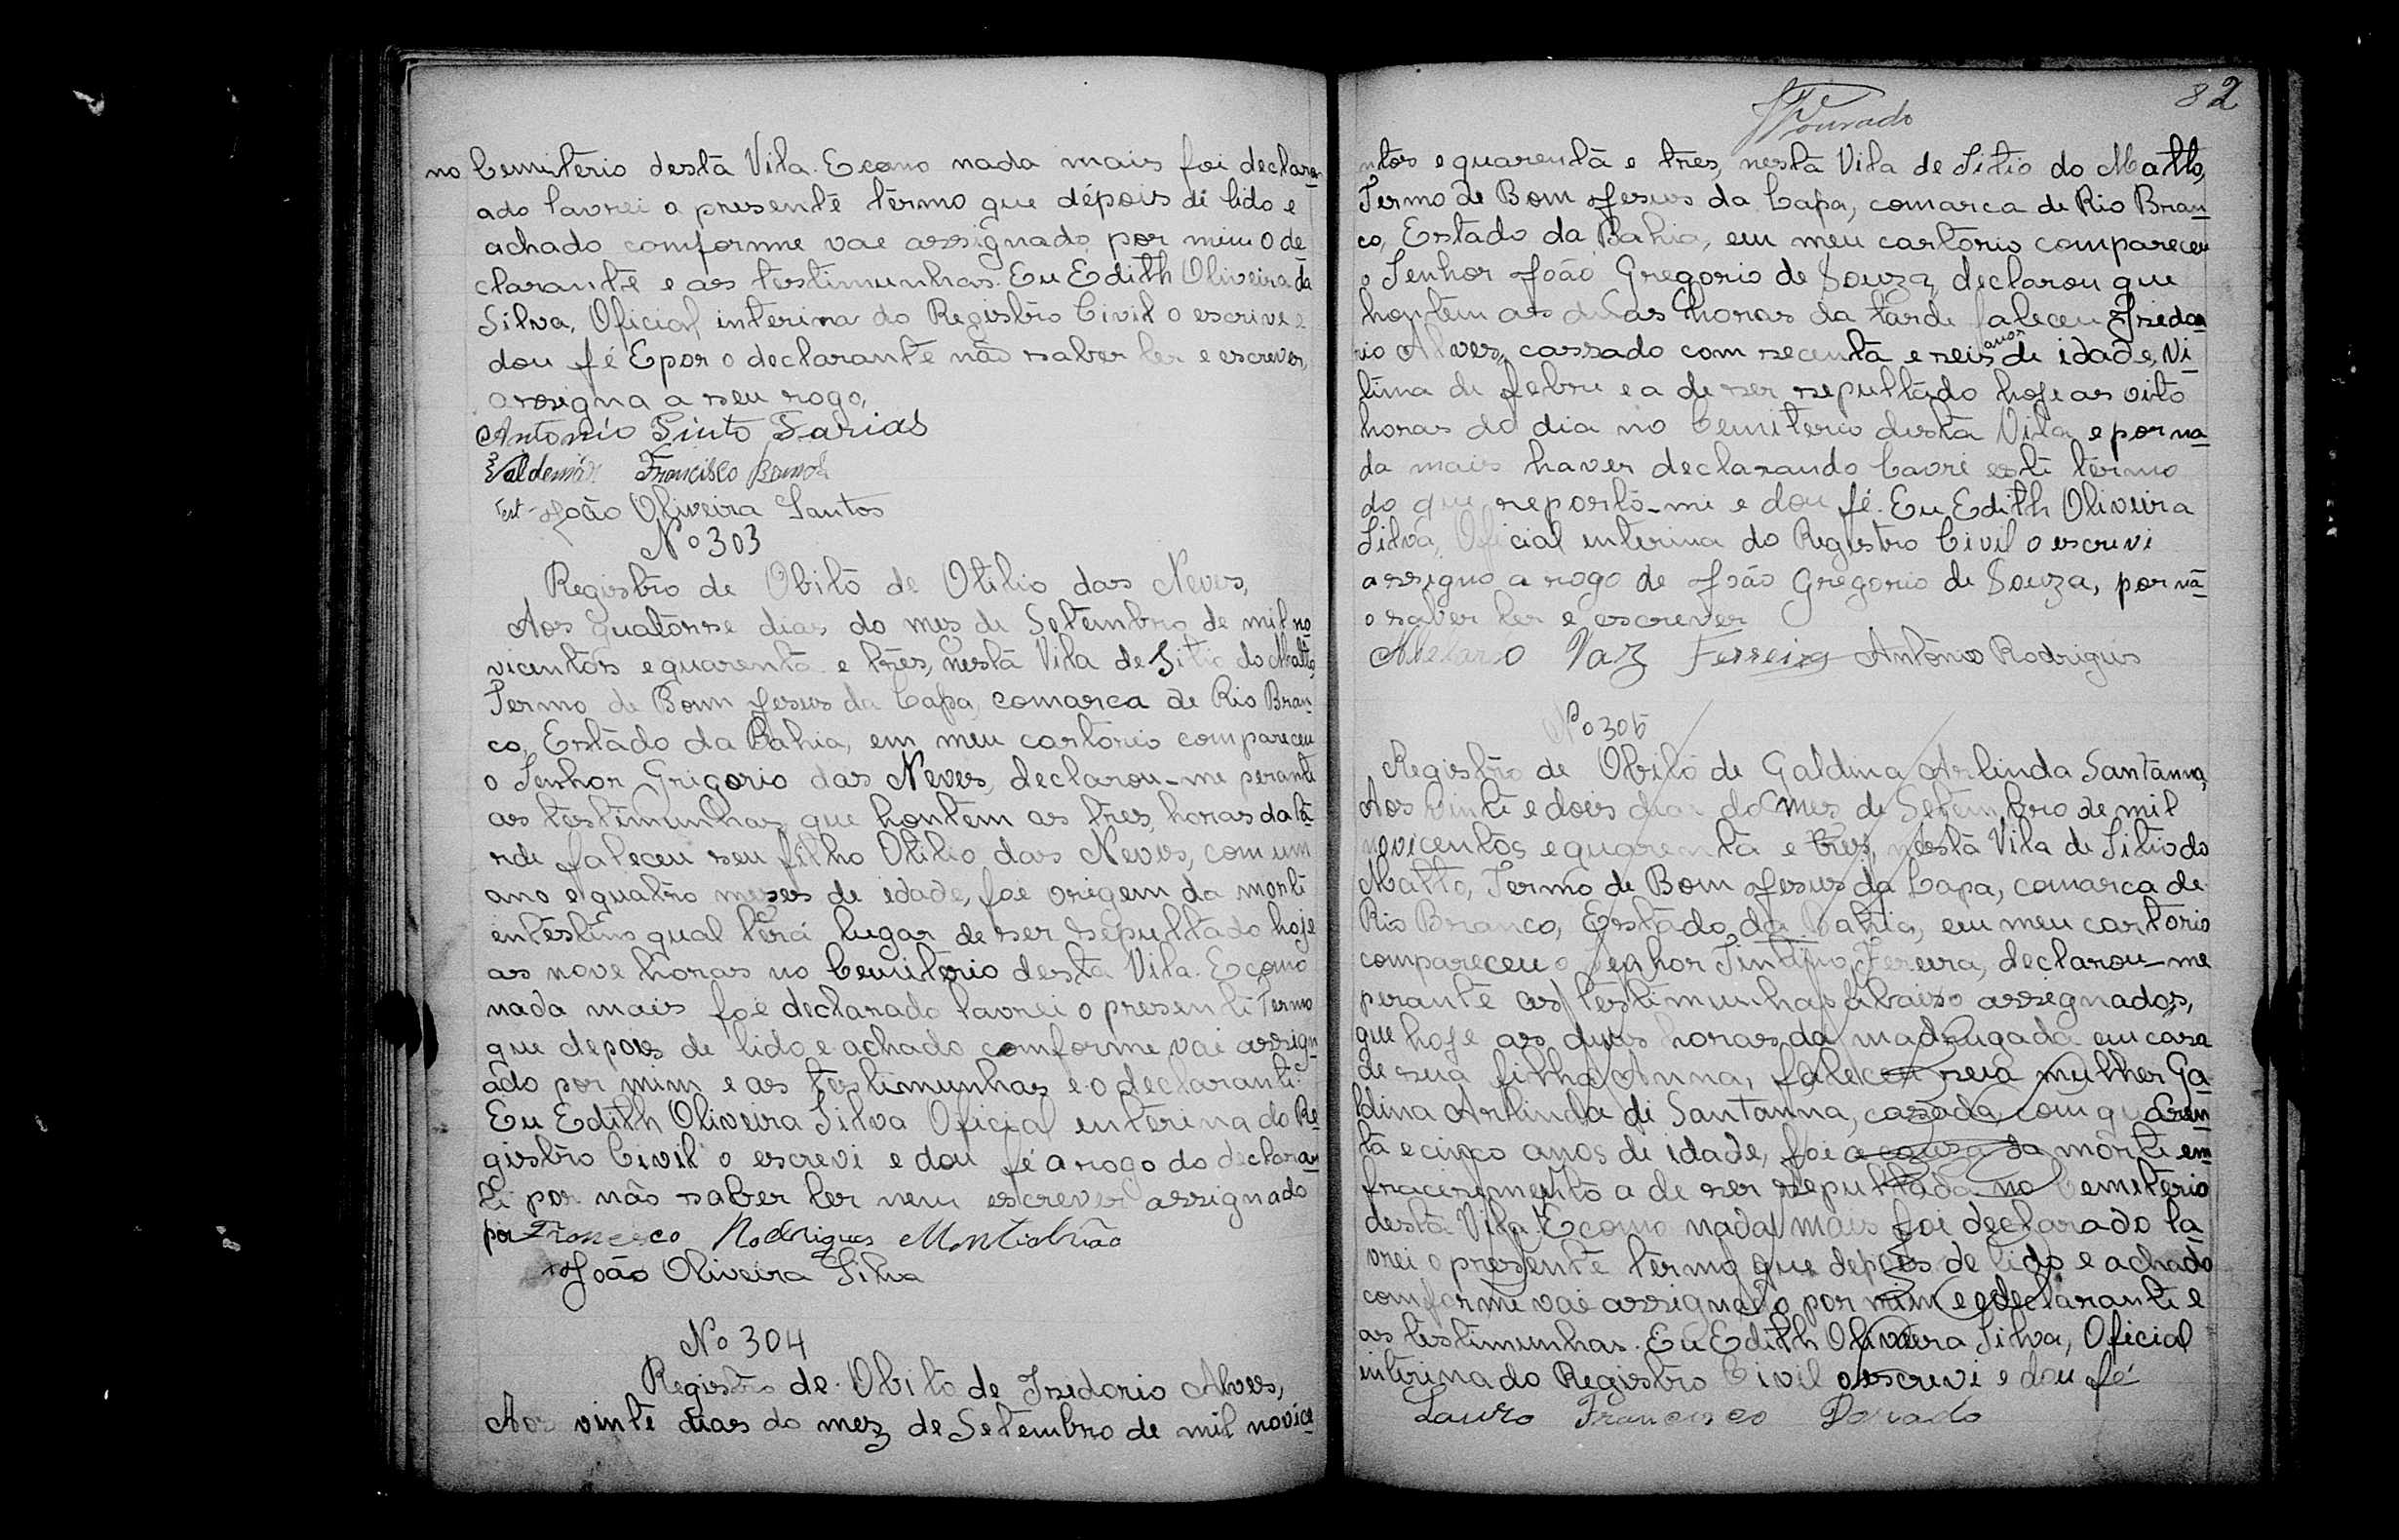 no Cemiterio desta Vila. E como nada mais foi declara
ado lavrei o presente termo que dépois di lido e
achado comforme vae assignado por mim o de
clarante e as testimunhas. Eu Edith Oliveira da
Silva, Oficial interina do Registro Civil o escrive e
dou fé E por o declarante não saber ler e escrever,
assigna a seu rogo,
Antonio Pinto Farias
Valdemar Francisco
Test - João Oliveira Santos
No 303
Registro de Obito de Otilio das Neves,
Aos quatorse dias do mes de Setembro de mil no
vicentos e quarenta e três, nesta Vila de Sitio do Matto,
Termo de Bom Jesus da Lapa, comarca de Rio Bran
co, Estado da Bahia, em meu cartorio compareceu
o Senhor Grigorio das Neves, declarou-me perante
as testimunhas que hontem as tres horas da ta
rde faleceu seu filho Otilio das Neves, com um
ano e quatro meses de idade, foi origem da morte
intestino qual terá lugar de ser sepultado hoje
as nove horas no Cemiterio desta Vila. E como
nada mais foi declarado lavrei o presente termo
que depois de lido e achado comforme vai assign
ado por mim e as testimunhas e o declarante.
Eu Edith Oliveira Silva Oficial interina do Re
gistro Civil o escrevi e dou fé a rogo do declaran
te por não saber ler nem escrever assignado
por Francisco Rodrigues
João Oliveira Silva
No 304
Registro de Obito de Isedorio Alves,
Aos vinte dias do mez de Setembro de mil novice
82
Dourado
ntos e quarenta e tres, nesta Vila de Sitio do Matto,
Termo de Bom Jesus da Lapa, comarca de Rio Bran
co, Estado da Bahia, em meu cartorio compareceu
o Senhor João Gregorio de Souza, declarou que
hontem as duas horas da tarde faleceu Isedo
rio Alves, cassado com secenta e seis anos de idade, vi
tima de febre e a de ser sepultado hoje as oito
horas do dia no Cemiterio desta Vila e por na
da mais haver declarando lavre este termo
do que reporto-me e dou fé. Eu Edith Oliveira
Silva, Oficial interina do Registro Civil o escrevi
assigno a rogo de João Gregorio de Souza, por nã
o saber ler e escrever
Vaz Ferreira Antonio Rodrigues
No 305
Registro de Obito de Galdina Arlinda Santanna,
Aos vinte e dois dias do mes de Setembro de mil
novicentos e quarenta e tres, nesta Vila de Sitio do
Matto, Termo de Bom Jesus da Lapa, comarca de
Rio Branco, Estado da Bahia, em meu cartorio
compareceu o Senhor Fereira, declarou-me
perante as testimunhas abaixo assegnados,
que hoje as duas horas da madrugada em casa
de sua filha Anna, faleceu seia mulher Ga
ldina Arlinda di Santanna, casada com quaren
ta e cinco anos di idade, foi a causa da morte em
fracesimento a de ser sepultada no Cemiterio
desta Vila. E como nada mais foi declarado la
vrei o presente termo que depois de lido e achado
comforme vai assignado por mim e o declarante e
as testimunhas. Eu Edith Oliveira Silva, Oficial
interina do Registro Civil o escrevi e dou fé
Lauro Francisco Dourado